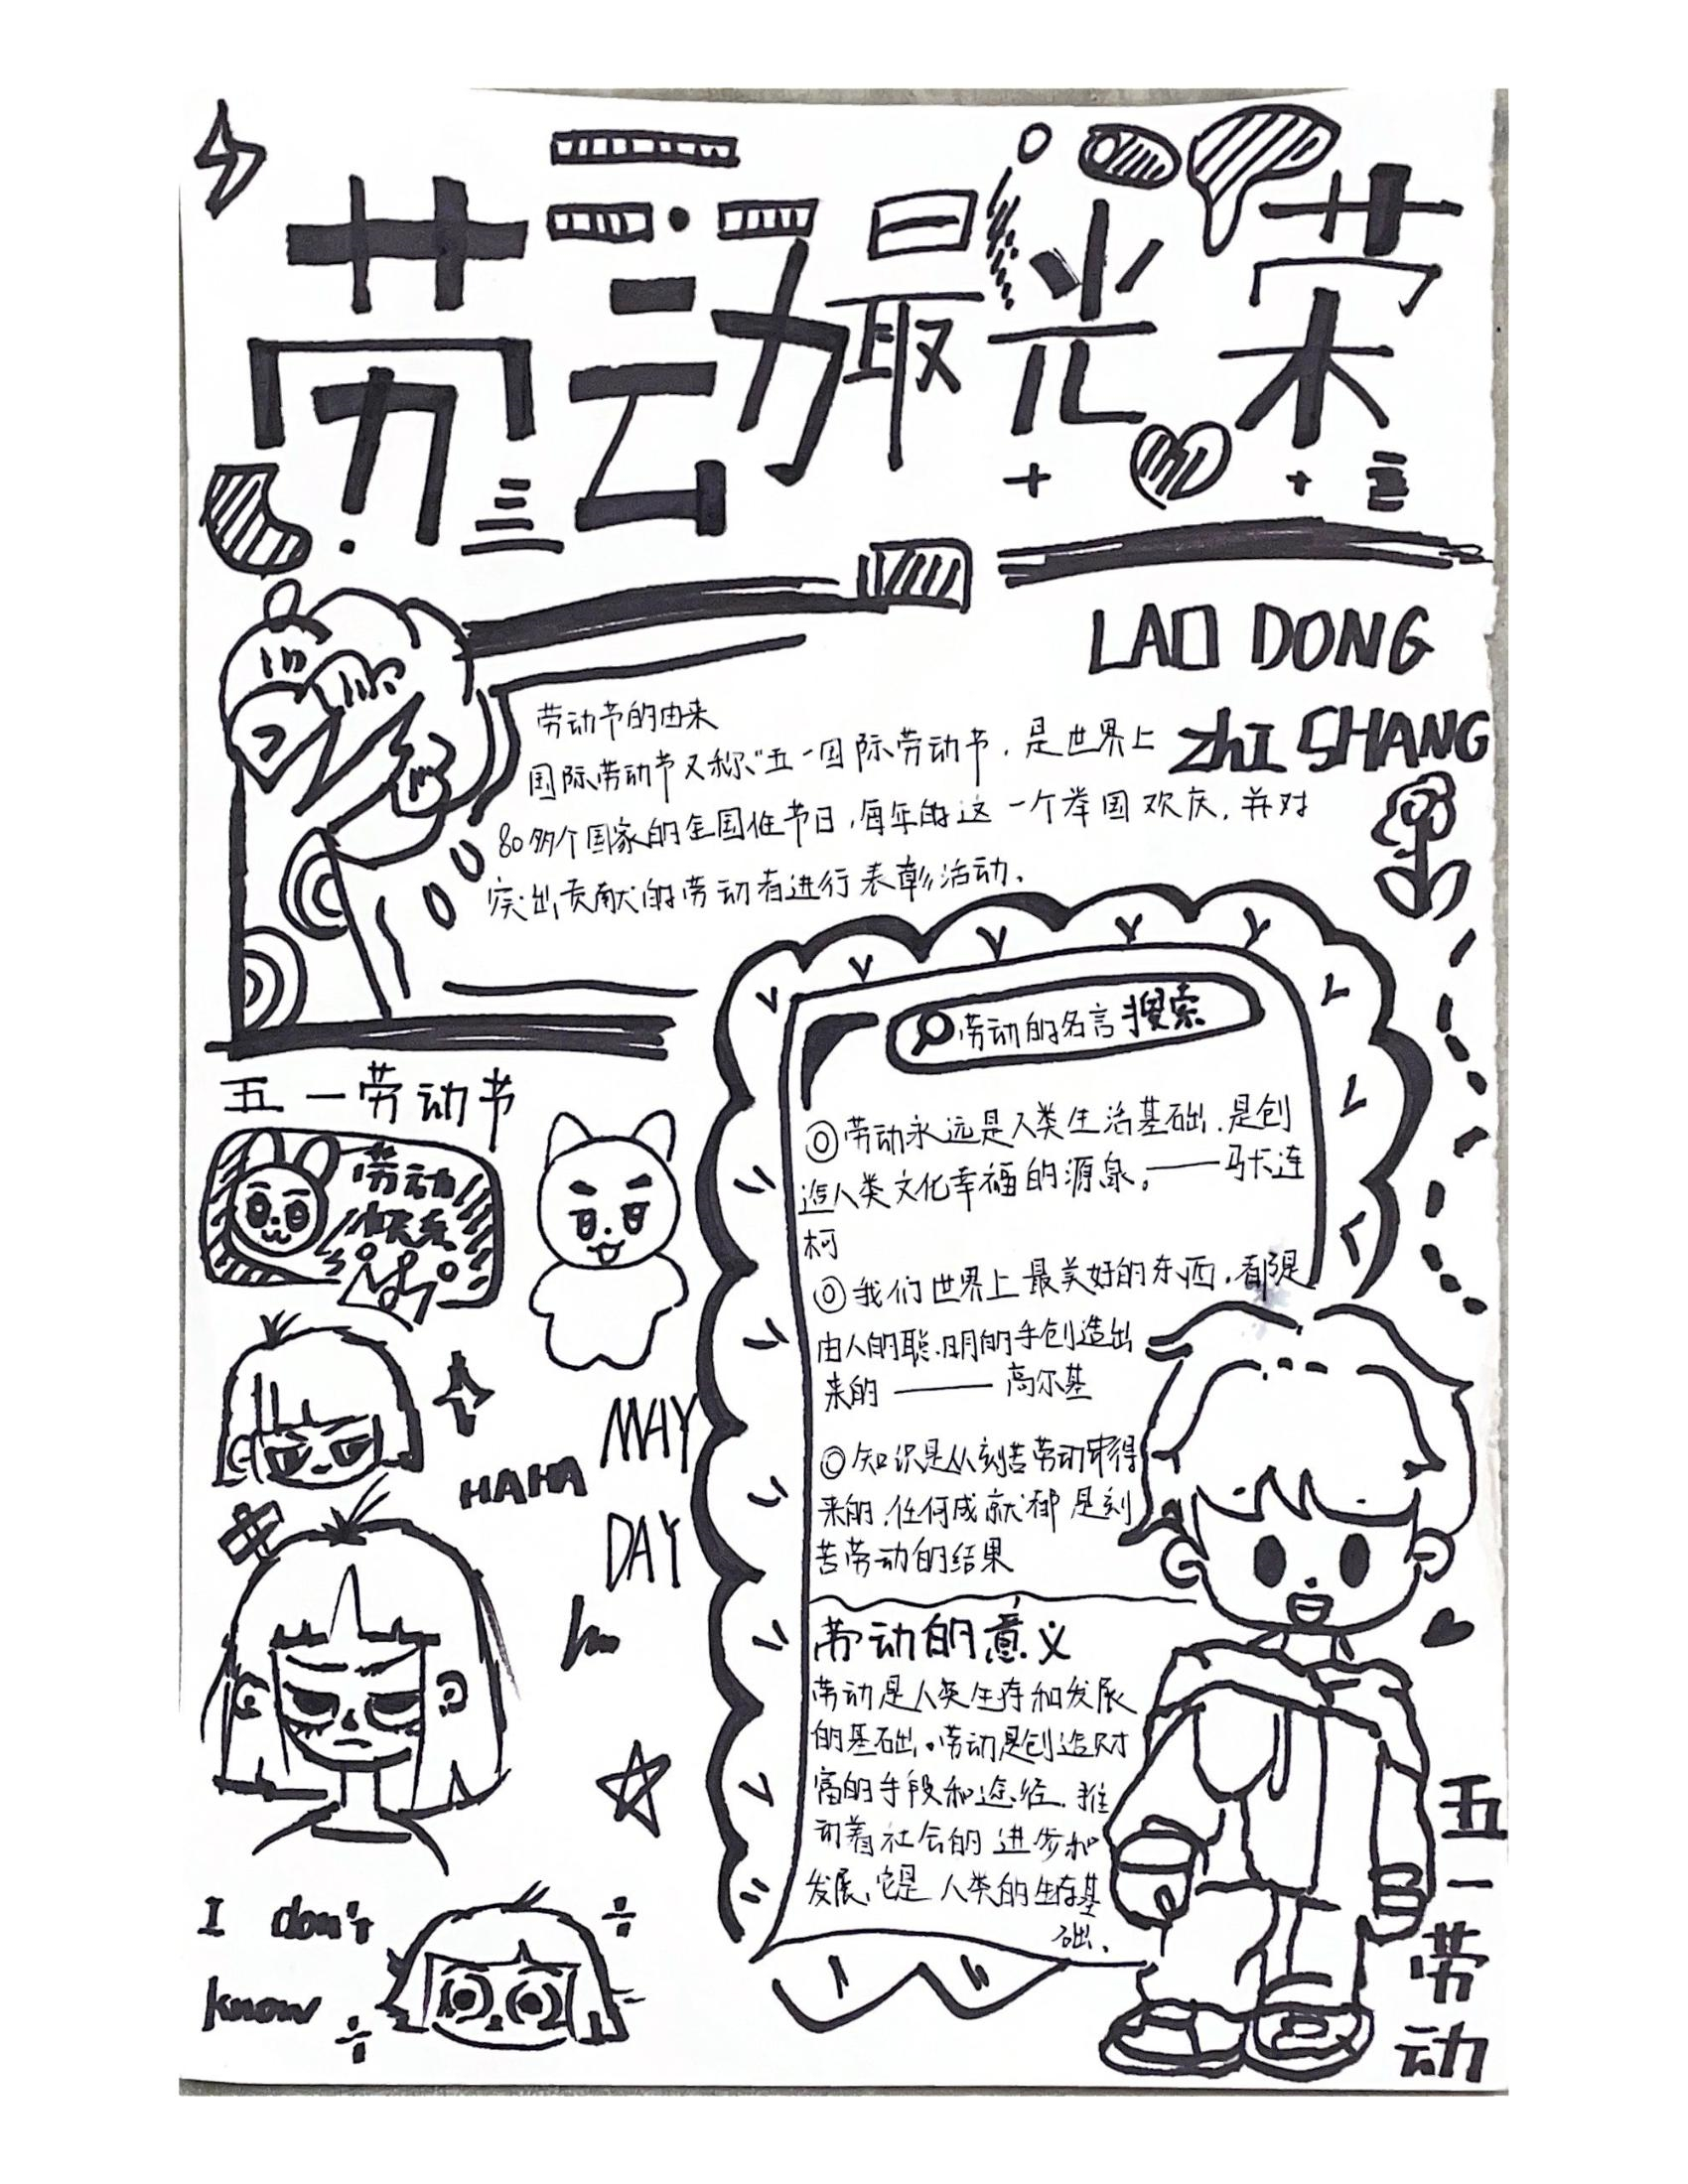 劳动最光荣
LAO DONG
zhi SHANG
劳动节的由来
国际劳动节又称“五一国际劳动节，是世界上
80多个国家的全国性节日，每年的这一个举国欢庆，并对
突出贡献的劳动者进行表彰活动、
劳动的名言 搜索
◎劳动永远是人类生活基础，是创
造人类文化幸福的源泉。——马卡连
柯
◎我们世界上最美好的东西，都是
由人的聪明的手创造出
来的 —— 高尔基
◎知识是从刻苦劳动中得
来的，任何成就都是刻
苦劳动的结果
劳动的意义
劳动是人类生存和发展
的基础。劳动是创造财
富的手段和途径，推
动着社会的进步和
发展，它是人类的生存基
础、
五一劳动节
劳动
快乐
MAY
HAHA
DAY
I don't
know
五
一
劳
动